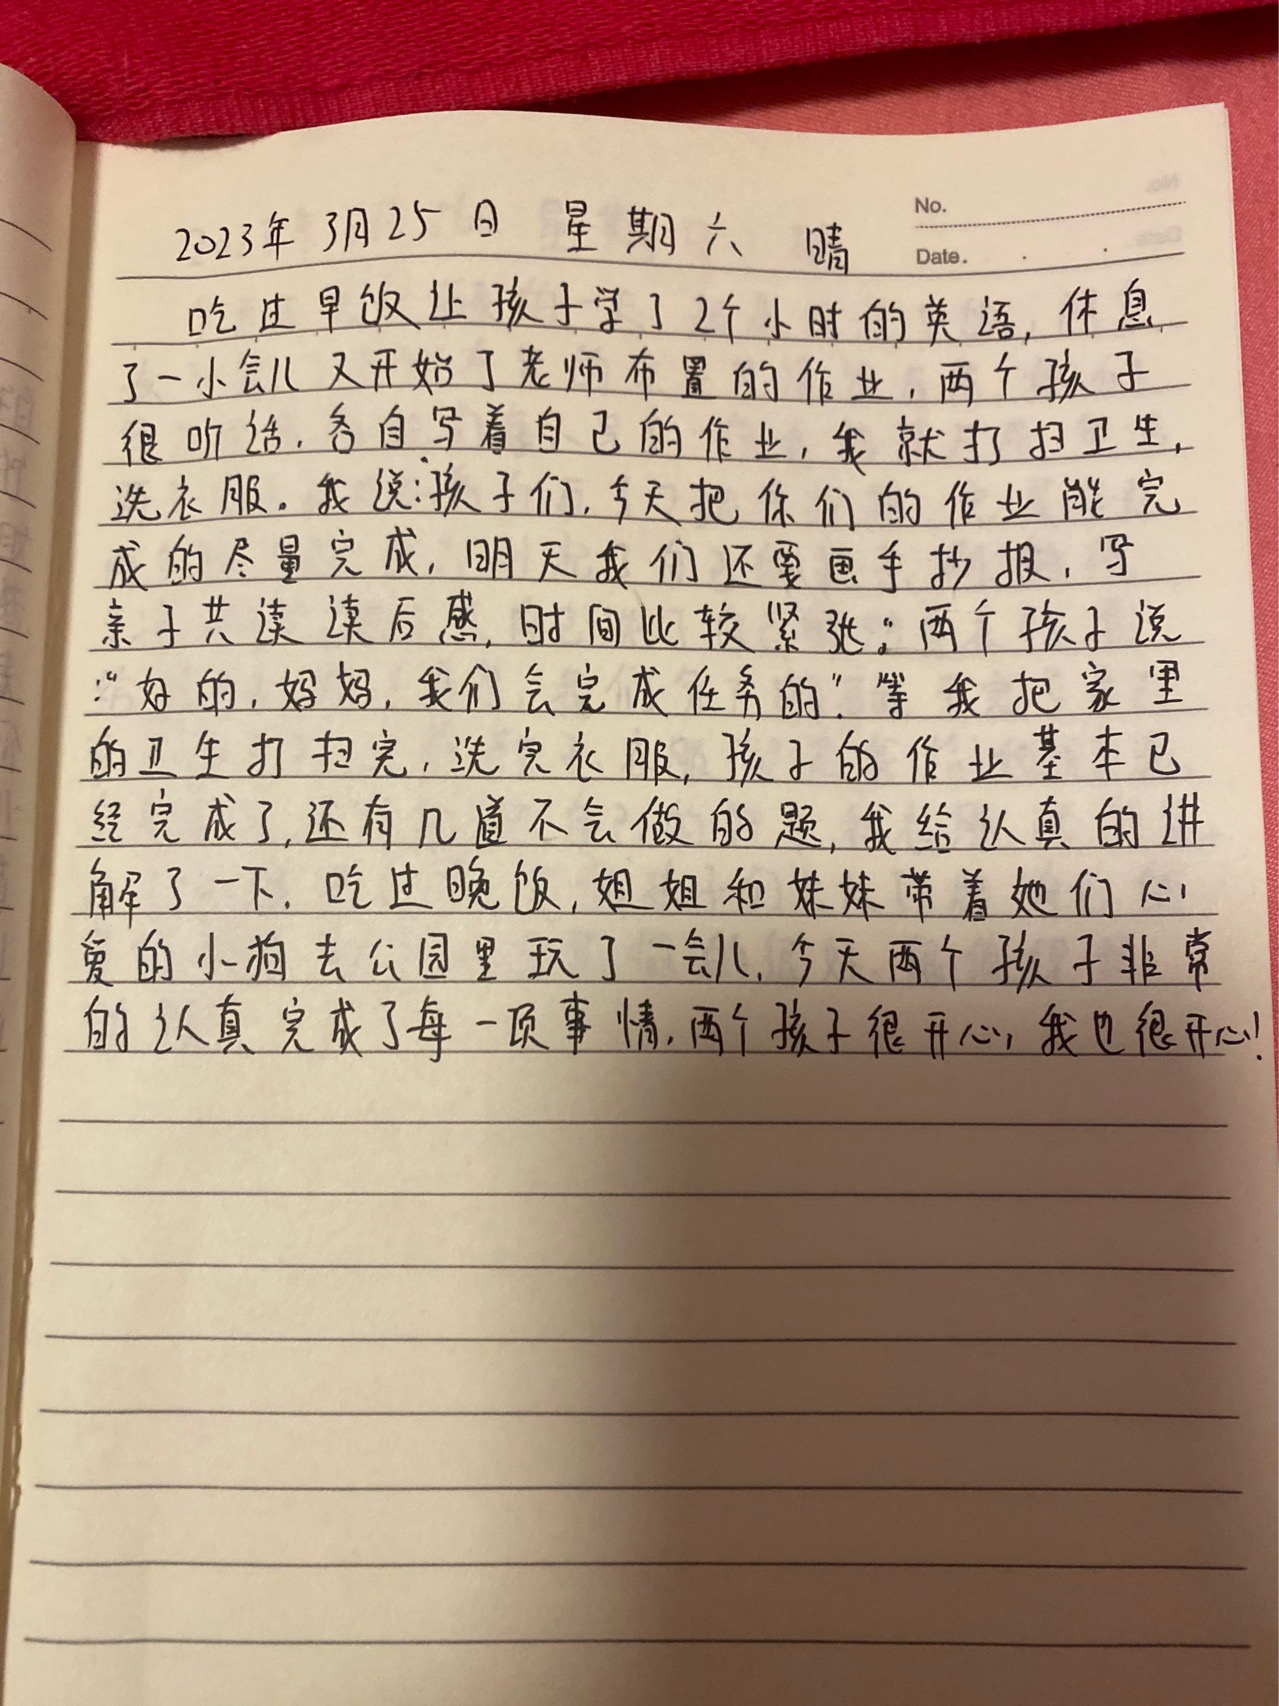 No.
Date.
2023年3月25日 星期六 晴
吃过早饭让孩子学了2个小时的英语,休息
了一小会儿又开始了老师布置的作业,两个孩子
很听话,各自写着自己的作业,我就打扫卫生,
洗衣服。我说:孩子们,今天把你们的作业能完
成的尽量完成,明天我们还要画手抄报,写
亲子共读读后感,时间比较紧张。"两个孩子说
:"好的,妈妈,我们会完成任务的."等我把家里
的卫生打扫完,洗完衣服,孩子的作业基本已
经完成了,还有几道不会做的题,我给认真的讲
解了一下,吃过晚饭,姐姐和妹妹带着她们心
爱的小狗去公园里玩了一会儿,今天两个孩子非常
的认真完成了每一项事情,两个孩子很开心,我也很开心!